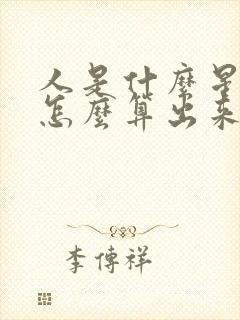 人是什麼是
怎麼算出來
李傳祥